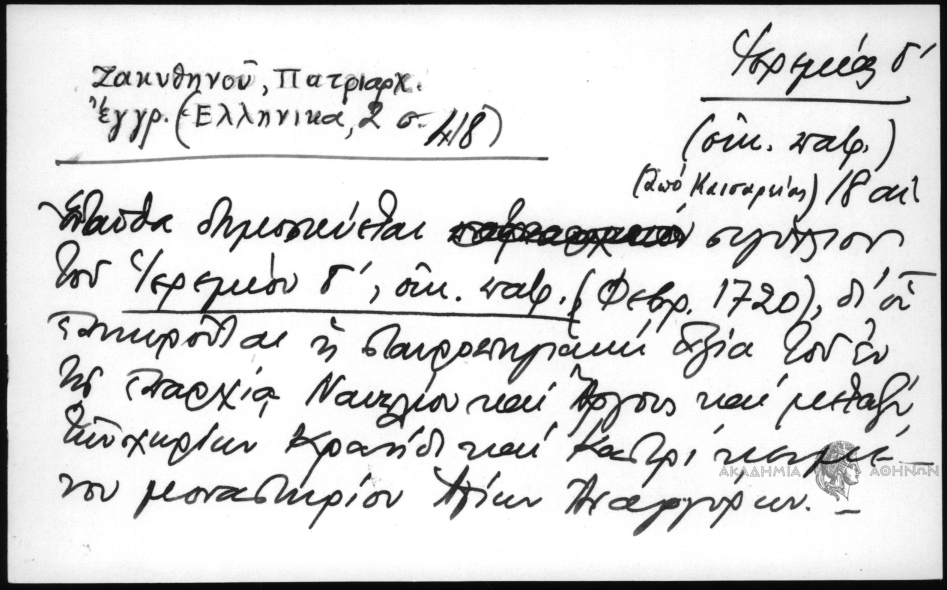 Ἱερεμίας δ'
Ζακυθηνοῦ, Πατριαρχ.
ἔγγρ. (Ἑλληνικα, 2 σ. 418)
(οἰκ. πατρ.)
(ἀπό Καισαρείας) 18 αἰ
Ἐνταῦθα δημοσιεύεται σιγίλλιον
τοῦ Ἱερεμίου δ', οἰκ. πατρ. (Φεβρ. 1720), δι' οὗ
ἐπικυροῦται ἡ σταυροπηγιακή ἀξία τοῦ ἐν
τῇ ἐπαρχίᾳ Ναυπλίου καί Ἄργους καί μεταξύ
τῶν χωρίων Κρανίδι καί Καστρί κειμέ-
νου μοναστηρίου Ἁγίων Ἀναργύρων. –
ΑΚΑΔΗΜΙΑ ΑΘΗΝΩΝ